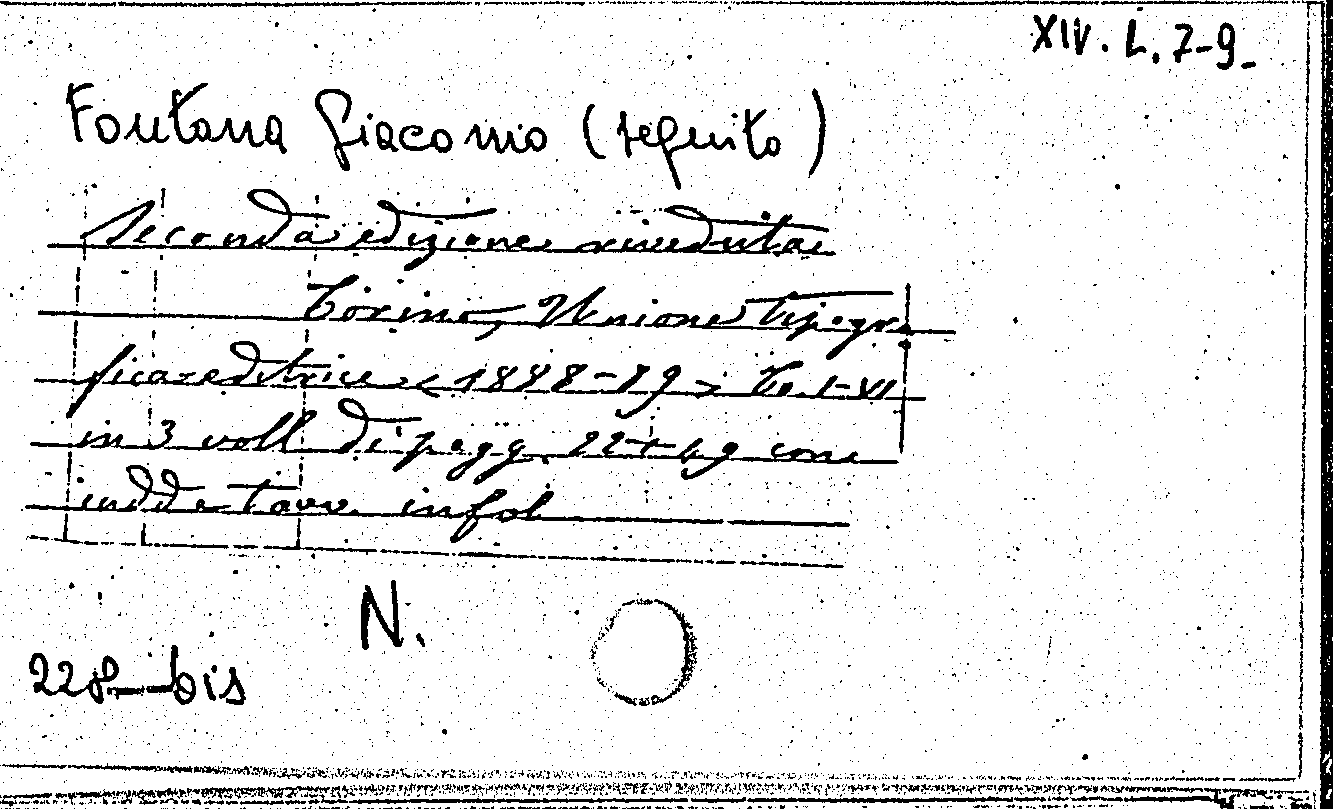 XIV. L. 7-9-
Fontana Giacomo (seguito)
Seconda edizione riveduta
Torino, Unione Tipogra
fica-editrice < 1888-89 > To. I-VI
in 3 voll di pagg. 22+49 con
indd e tavv. in fol
N.
228-bis